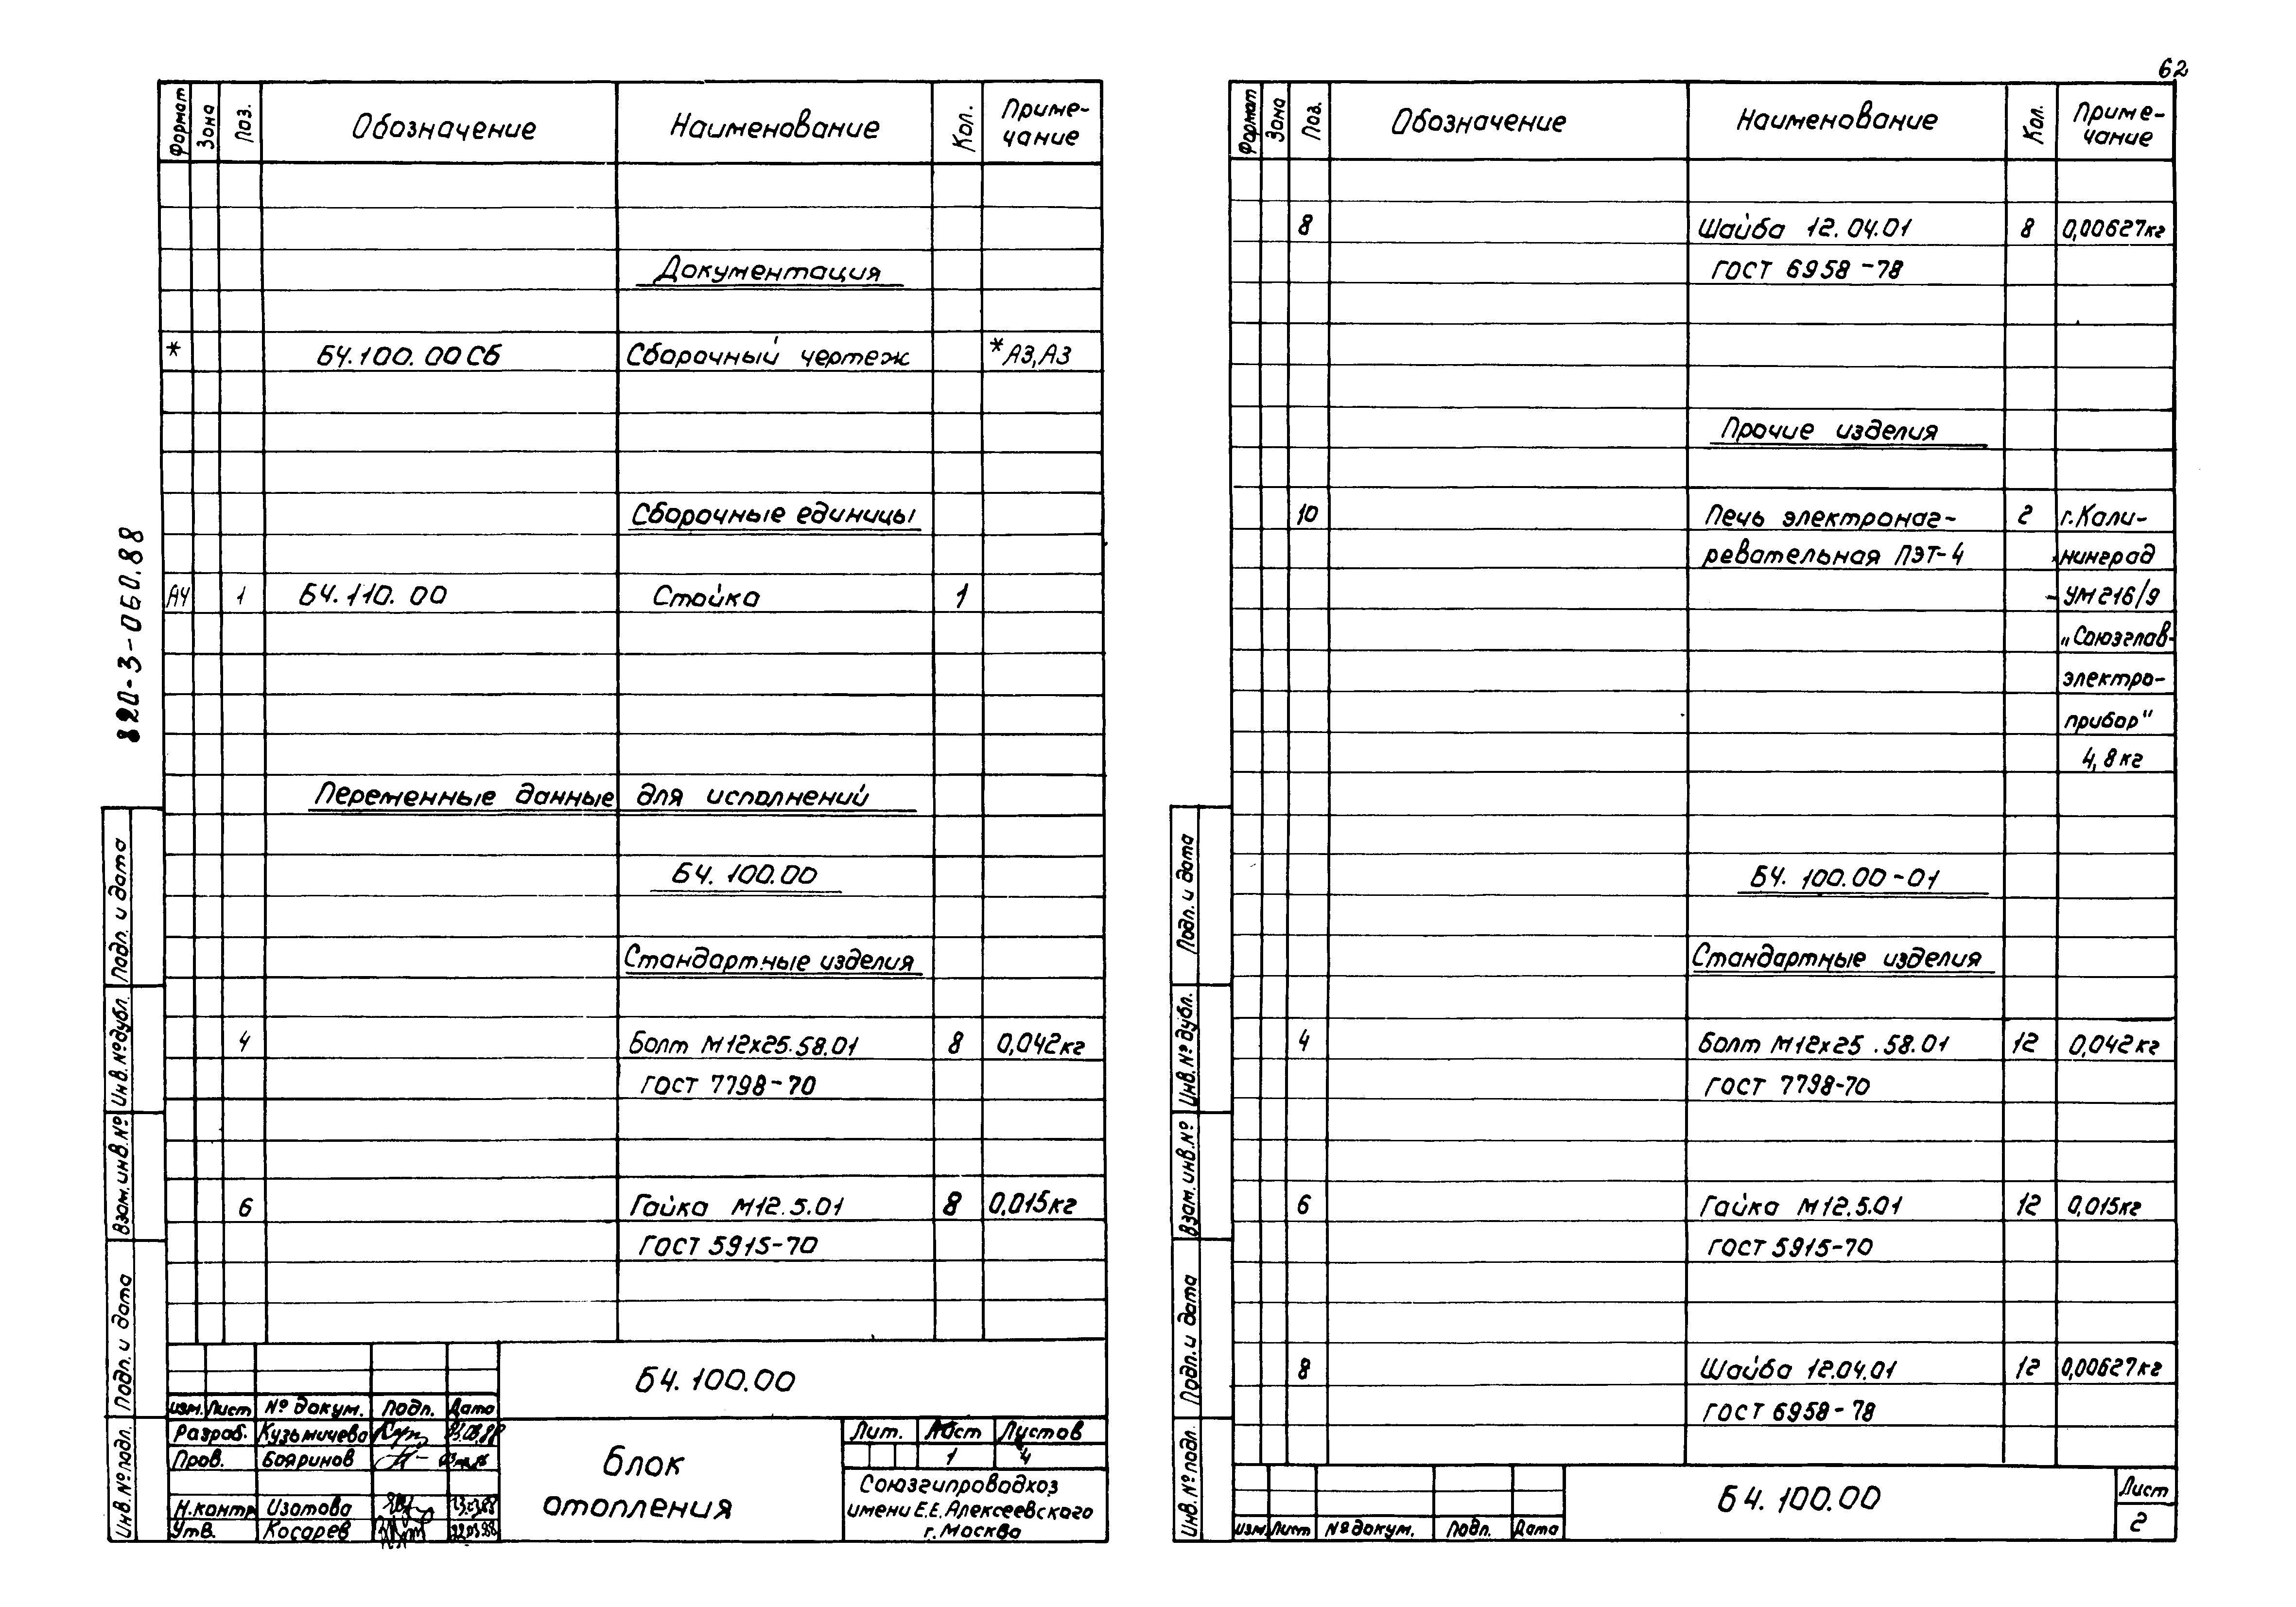 62
820-3-060.88
Формат Зона Поз. Обозначение Наименование Кол. Приме-
чание
Документация
* Б4.100.00СБ Сборочный чертеж *А3,А3
Сборочные единицы
А4 1 Б4.110.00 Стойка 1
Переменные данные для исполнений
Б4.100.00
Стандартные изделия
4 Болт М12х25.58.01 8 0,042кг
ГОСТ 7798-70
6 Гайка М12.5.01 8 0,015кг
ГОСТ 5915-70
Подп. и дата
Инв.№дубл.
Взам.инв.№
Подп. и дата
Инв.№подл.
Б4.100.00
Изм. Лист № докум. Подп. Дата
Разраб. Кузьмичева
Пров. Бояринов
Н.контр Изотова
Утв. Косарев
Блок
отопления
Лит. Лист Листов
1 4
Союзгипроводхоз
имени Е.Е.Алексеевского
г.Москва
Формат Зона Поз. Обозначение Наименование Кол. Приме-
чание
8 Шайба 12.04.01 8 0,00627кг
ГОСТ 6958-78
Прочие изделия
10 Печь электронаг- 2 г.Кали-
ревательная ПЭТ-4 нинград
УМ216/9
„Союзглав-
электро-
прибор"
4,8кг
Б4.100.00-01
Стандартные изделия
4 Болт М12х25.58.01 12 0,042кг
ГОСТ 7798-70
6 Гайка М12.5.01 12 0,015кг
ГОСТ 5915-70
8 Шайба 12.04.01 12 0,00627кг
ГОСТ 6958-78
Подп. и дата
Инв.№дубл.
Взам.инв.№
Подп. и дата
Инв.№подл.
Изм Лист №докум. Подп. Дата
Б4.100.00
Лист
2